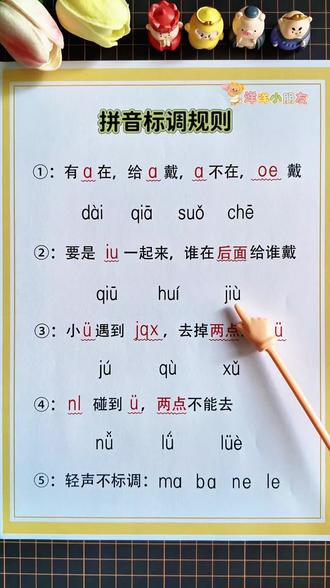 洋洋小朋友
拼音标调规则
①：有 a 在，给 a 戴，a 不在，oe 戴
dài qiā suǒ chē
②：要是 iu 一起来，谁在后面给谁戴
qiū huí jiù
③：小ü遇到 jqx，去掉两点 ü
jú qù xǔ
④：nl 碰到 ü，两点不能去
nǚ lǘ lüè
⑤：轻声不标调：ma ba ne le